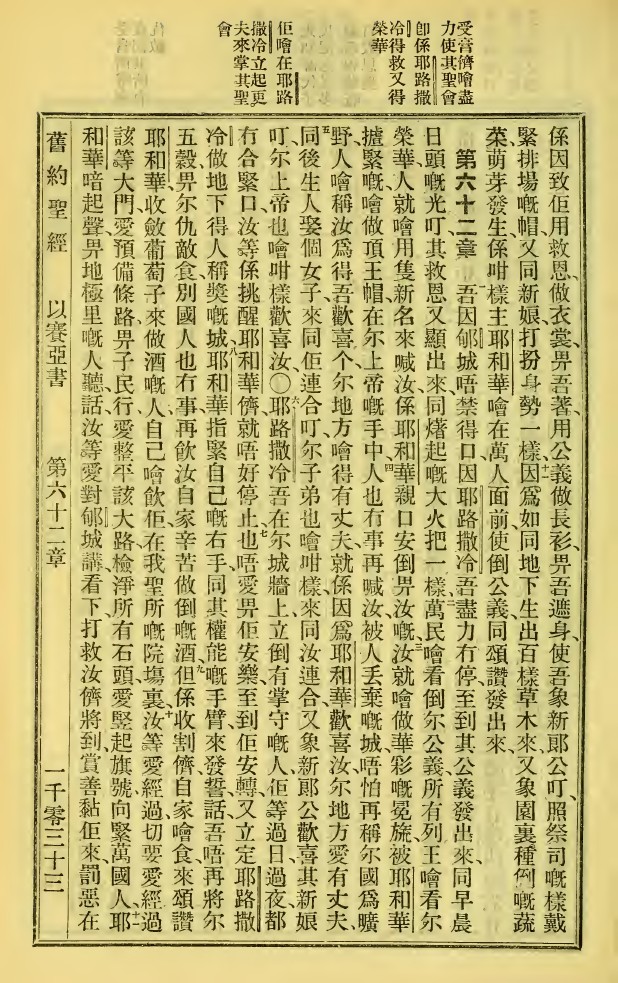 受膏儕噲盡
力使其聖會
卽係耶路撒
冷得救又得
榮華
佢噲在耶路
撒冷立起更
夫來掌其聖
會
係因致佢用救恩、做衣裳、畀吾著、用公義做長衫、畀吾遮身、使吾象新郞公叮、照祭司嘅樣戴
緊排場嘅帽、又同新娘、打扮身勢一樣、因爲如同地下生出百樣草木來、又象園裏種倒嘅蔬
菜萌芽發生、係咁樣主耶和華噲在萬人面前、使倒公義、同頌讚發出來、
第六十二章 一吾因郇城唔禁得口、因耶路撒冷、吾盡力冇停、至到其公義發出來、同早晨
日頭嘅光叮、其救恩又顯出來、同㷖起嘅大火把一樣、二萬民噲看倒尔公義、所有列王、噲看尔
榮華、人就噲用隻新名來喊汝、係耶和華親口安倒畀汝嘅、三汝就噲做華彩嘅冕旒、被耶和華
㨿緊嘅、噲做頂王帽、在尔上帝嘅手中、四人也冇事再喊汝、被人丟棄嘅城、唔怕再稱尔國爲曠
野、人噲稱汝爲得吾歡喜个、尔地方噲得有丈夫、就係因爲耶和華歡喜汝、尔地方愛有丈夫、
五同後生人娶個女子、來同佢連合叮、尔子弟也噲咁樣、來同汝連合、又象新郞公歡喜其新娘
叮、尔上帝也噲咁樣歡喜汝、〇六耶路撒冷、吾在尔城牆上、立倒有掌守嘅人、佢等過日過夜、都
冇合緊口、汝等係挑醒耶和華儕、就唔好停止、七也唔愛畀佢安樂、至到佢安轉、又立定耶路撒
冷、做地下得人稱獎嘅城、八耶和華指緊自己嘅右手、同其權能嘅手臂、來發誓話、吾唔再將尔
五穀畀尔仇敵食、別國人也冇事再飲汝自家辛苦做倒嘅酒、九但係收割儕自家噲食、來頌讚
耶和華、收斂葡萄子來做酒嘅人、自己噲飲佢、在我聖所嘅院塲裏、十汝等愛經過、切要愛經過
該等大門、愛預備條路、畀子民行、愛整平該大路、檢淨所有石頭、愛堅起旗號、向緊萬國人、十一耶
和華喑起聲、畀地極里嘅人聽、話、汝等愛對郇城講、看下、打救汝儕將到、賞善黏佢來、罰惡在
舊約聖經 以賽亞書 第六十二章 一千零三十三